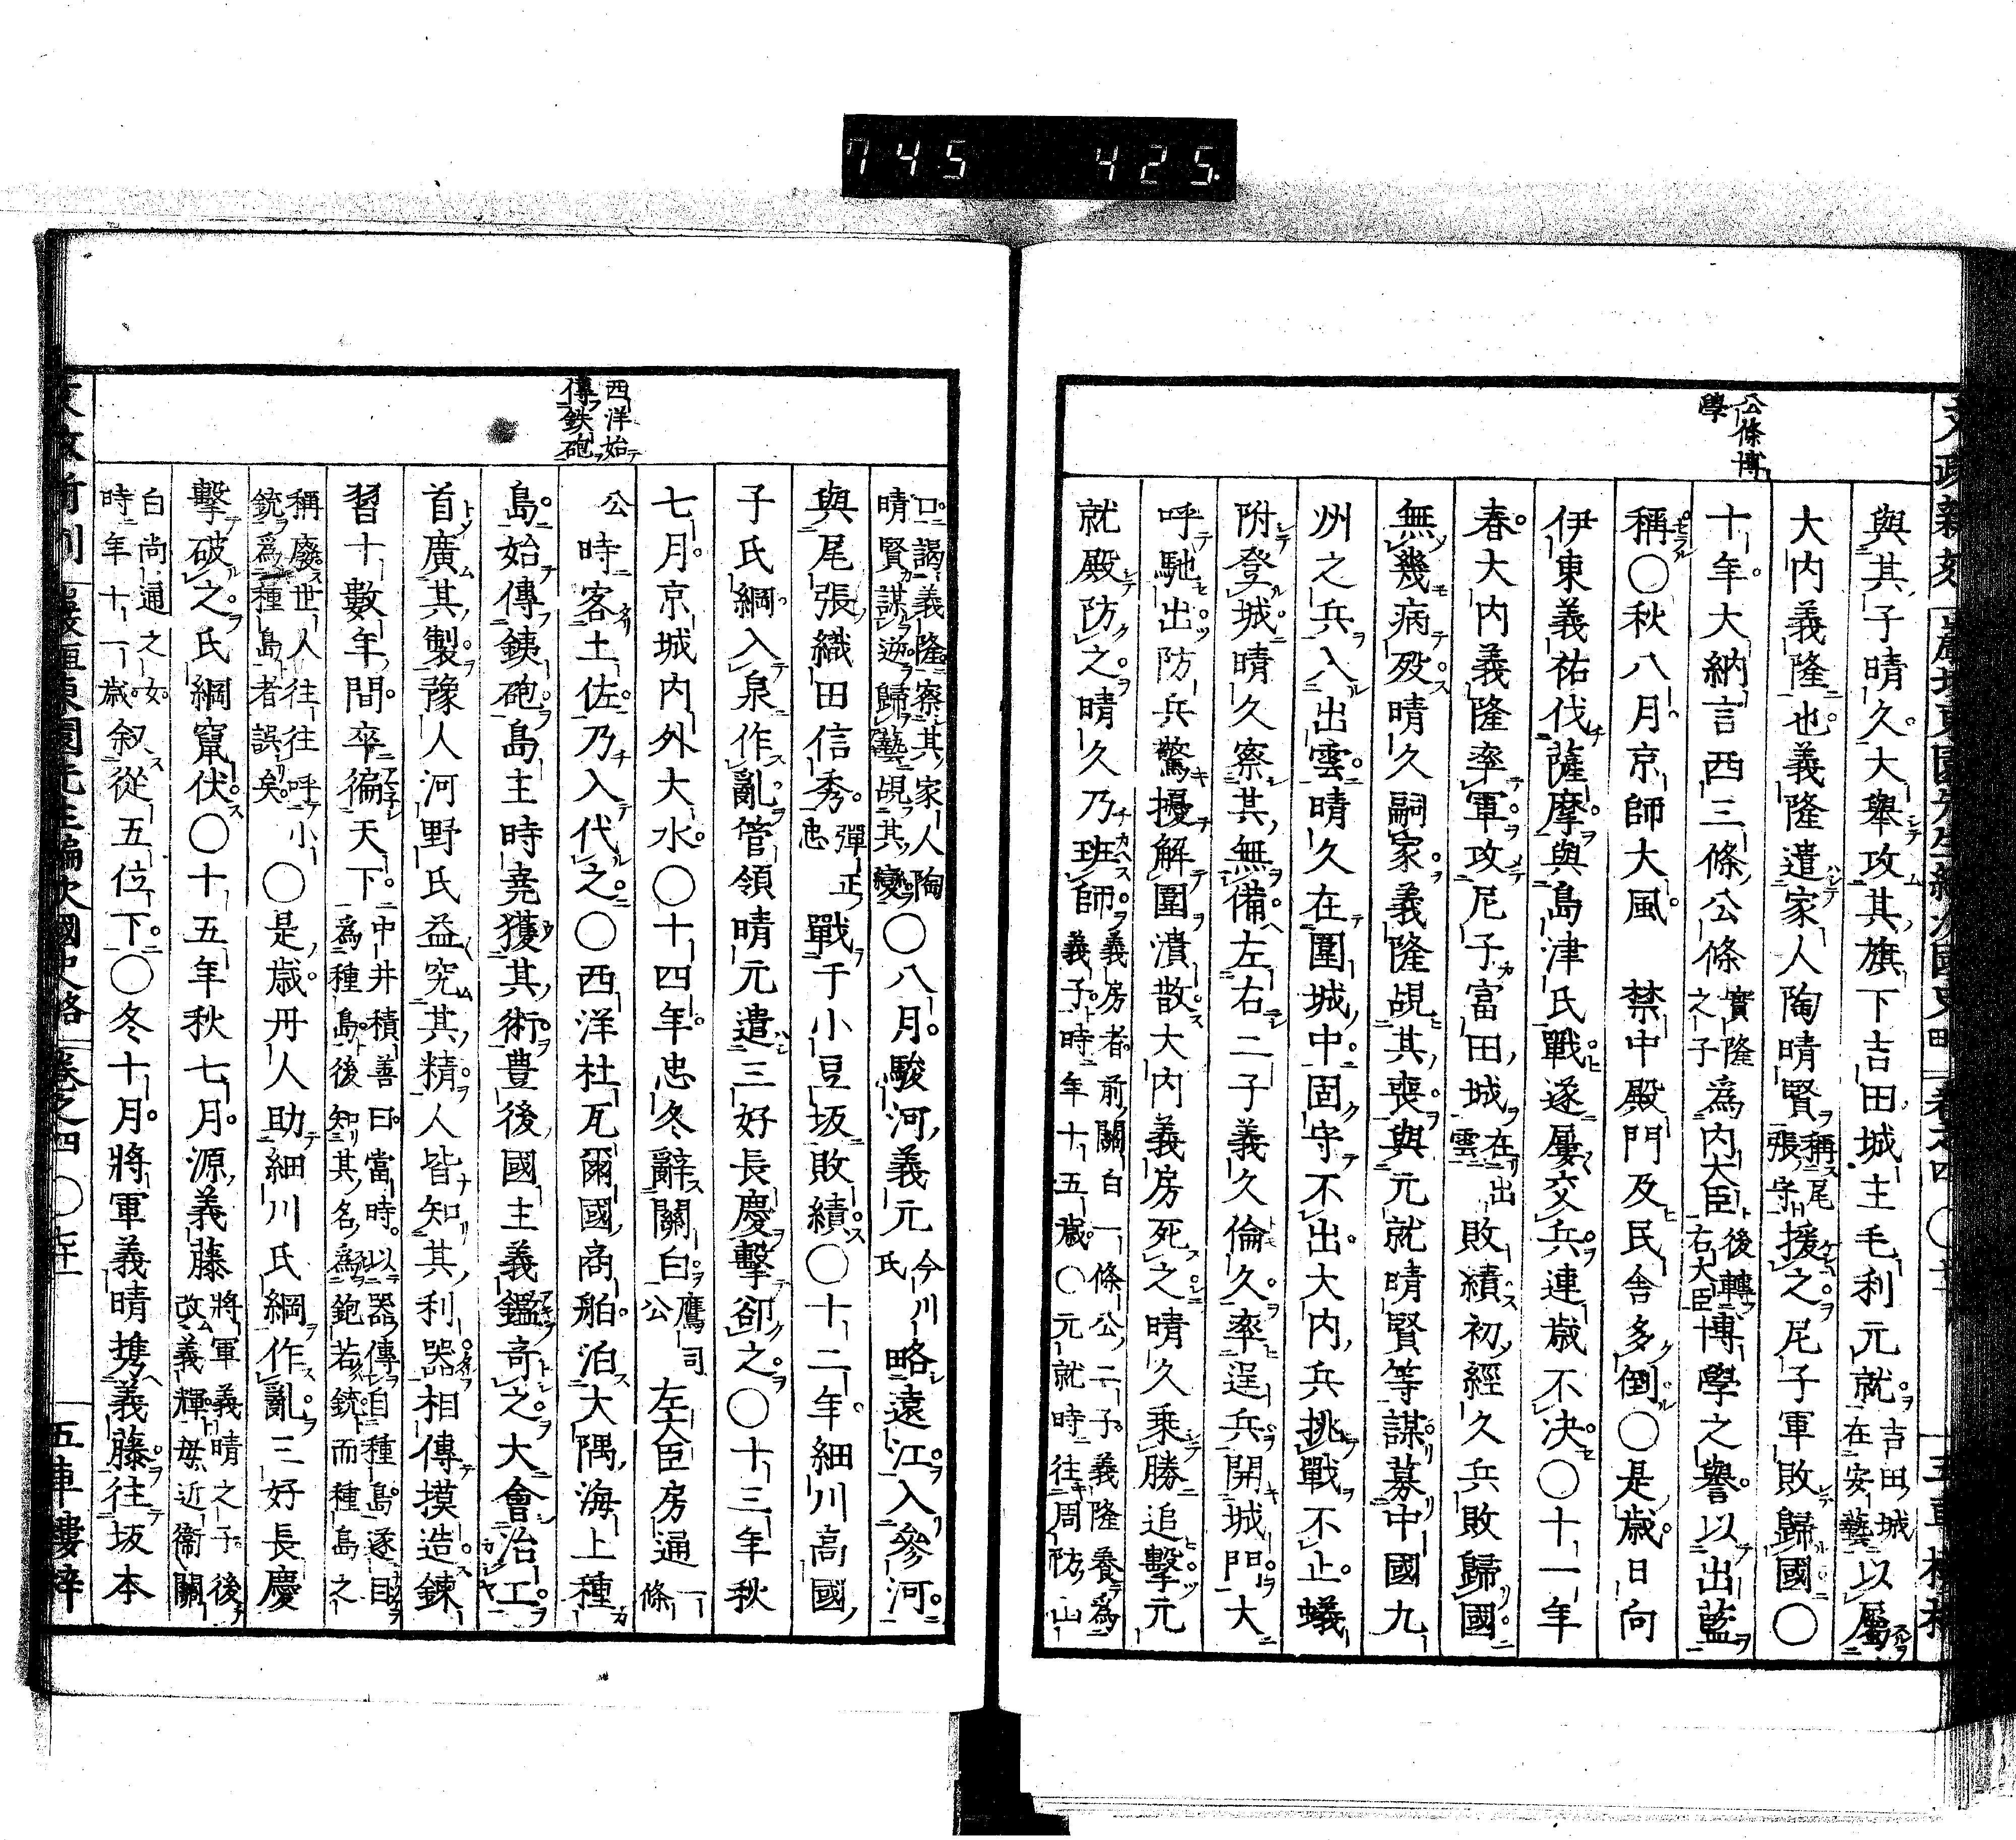 745 425.
公條博
學
與其子晴久大舉攻其旗下吉田城主毛利元就吉田城在安藝以屬
大內義隆也義隆遣家人陶晴賢稱尾張守援之尼子軍敗歸國〇
十年大納言西三條公條實隆之子爲內大臣後轉右大臣博學之譽以出藍
稱〇秋八月京師大風　禁中殿門及民舍多倒〇是歲日向
伊東義祐伐薩摩與島津氏戰遂屢交兵連歲不決〇十一年
春大內義隆率軍攻尼子富田城在出雲敗績初經久兵敗歸國
無幾病歿晴久嗣家義隆覘其喪與元就晴賢等謀募中國九
州之兵入出雲晴久在圍城中固守不出大內兵挑戰不止蟻
附登城晴久察其無備左右二子義久倫久率逞兵開城門大
呼馳出防兵驚擾解圍潰散大內義房死之晴久乘勝追擊元
就殿防之晴久乃班師義房者前關白一條公二子義隆養爲義子時年十五歲〇元就時往周防山
西洋始
傳鉄砲
口謁義隆察其家人陶晴賢謀逆歸藝覘其變〇八月駿河義元今川氏略遠江入參河
與尾張織田信秀彈正忠戰于小豆坂敗績〇十二年細川高國
子氏綱入泉作亂管領晴元遣三好長慶擊卻之〇十三年秋
七月京城內外大水〇十四年忠冬辭關白鷹司公左大臣房通一條
公時客土佐乃入代之〇西洋杜瓦爾國商舶泊大隅海上種
島始傳銕砲島主時堯獲其術豊後國主義鑑奇之大會冶工
首廣其製豫人河野氏益究其精人皆知其利器相傳摸造鍊
習十數年間卒徧天下中井積善曰當時以器傳自種島遂目爲種島後知其名爲鉋若銃而種島之
稱廢世人往往呼小銃爲種島者誤矣〇是歲丹人助細川氏綱作亂三好長慶
擊破之氏綱竄伏〇十五年秋七月源義藤將軍義晴之子後改義輝母近衞關
白尚通之女時年十一歲叙從五位下〇冬十月將軍義晴携義藤往坂本